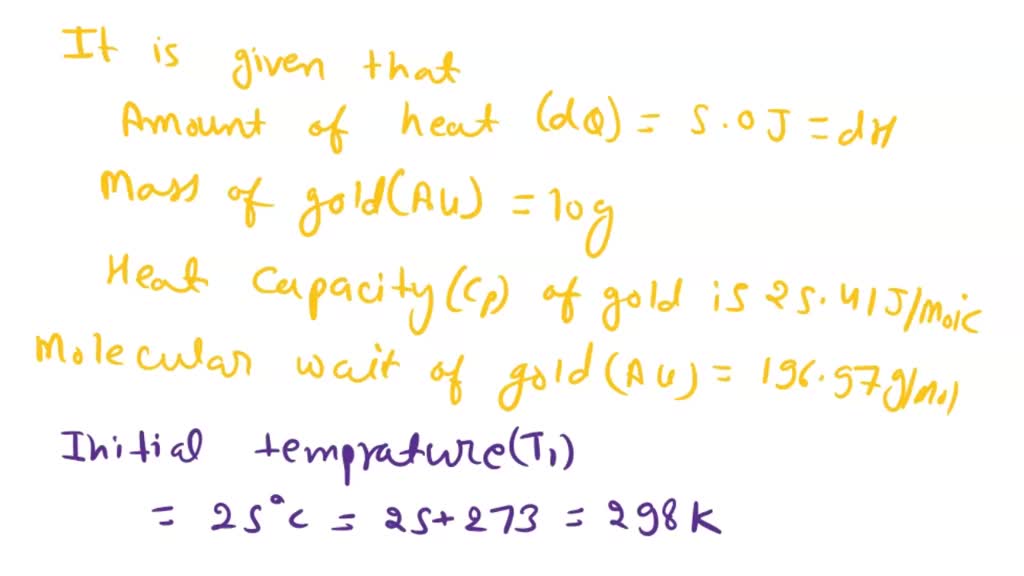 It is given that
Amount of heat (dQ) = 5.0 J = dH
Mass of gold(Au) = 10g
Heat Capacity(Cp) of gold is 25.41J/moic
Molecular wait of gold(Au) = 196.97g/mol
Initial temprature(T1)
= 25°C = 25+273 = 298K